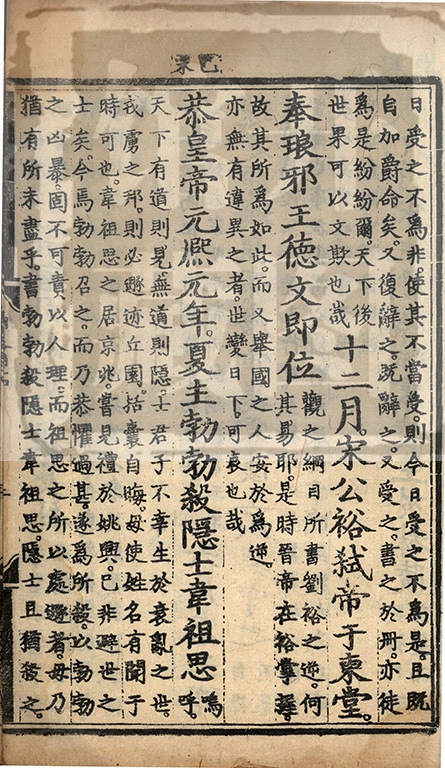 己未
日受之不爲非。使其不當受。則今日受之不爲是。且既
自加爵命矣。又復辭之。既辭之。又受之。書之於冊。亦徒
爲是紛紛爾。天下後
世果可以文欺也哉
十二月。宋公裕弒帝于東堂。
奉琅邪王德文即位
觀之綱目所書劉裕之逆。何
其易耶。是時晉帝在裕掌握。
故其所爲如此。而又舉國之人安於爲逆。
亦無有違異之者。世變日下。可哀也哉
恭皇帝元熙元年。夏主勃勃殺隱士韋祖思
嗚
呼。
天下有道則見。無道則隱。士君子不幸生於衰亂之世。
戎虜之邦。則必遯迹丘園。括囊自晦。毋使姓名有聞于
時可也。韋祖思之居京兆。嘗見禮於姚興。已非避世之
士矣。今焉勃勃召之。而乃恭懼過甚。遂爲所殺。以勃勃
之凶暴。固不可責以人理。而祖思之所以處避者。毋乃
猶有所未盡乎。書勃勃殺隱士韋祖思。隱士且猶殺之。